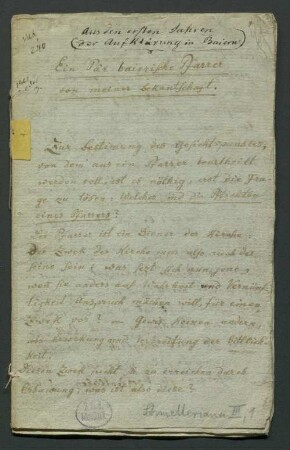 Aus den ersten Jahren
(der Aufklärung in Baiern)
Ein Paar baierische Pfarrer
von meiner Bekantschaft.
Zur Bestimung des Gesichtspunktes,
von dem aus ein Pfarrer beurtheilt
werden soll, ist es nöthig, erst die Fra-
ge zu lösen: Welches sind die Pflichten
eines Pfarrers?
Der Pfarrer ist ein Diener der Kirche.
Der Zwek der Kirche muß also auch der
seine sein; was sezt sich nun jene,
wenn sie anders auf Ehrbarkeit und Vernünf-
tigkeit Anspruch machen will, für einen
Zwek vor? Gewis keinen andern,
als Erweckung und Beförderung der Sittlich-
keit;
Diesen Zwek sucht sie zu erreichen durch
Erbauung; was ist also diese?
Schmelleriana III, 9